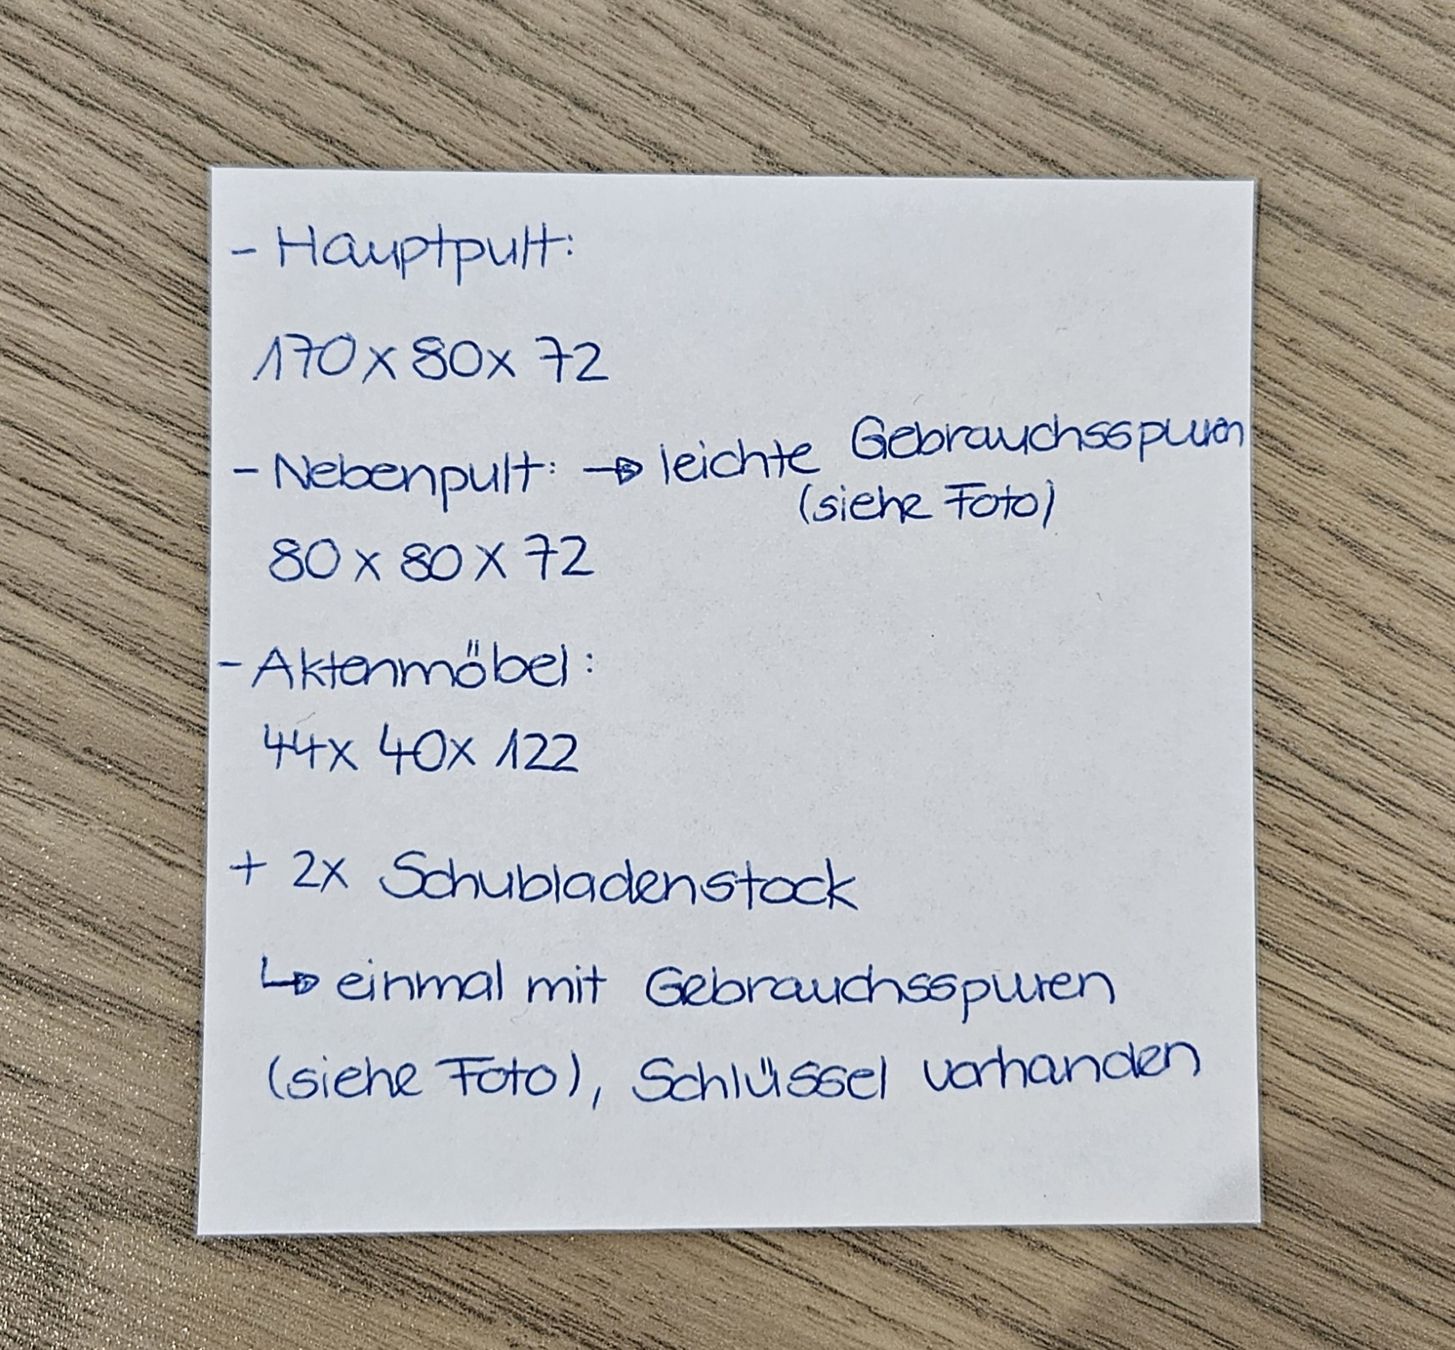 - Hauptpult:
170 x 80 x 72
- Nebenpult: → leichte Gebrauchsspuren
(siehe Foto)
80 x 80 x 72
- Aktenmöbel:
44 x 40 x 122
+ 2x Schubladenstock
↳ einmal mit Gebrauchsspuren
(siehe Foto), Schlüssel vorhanden